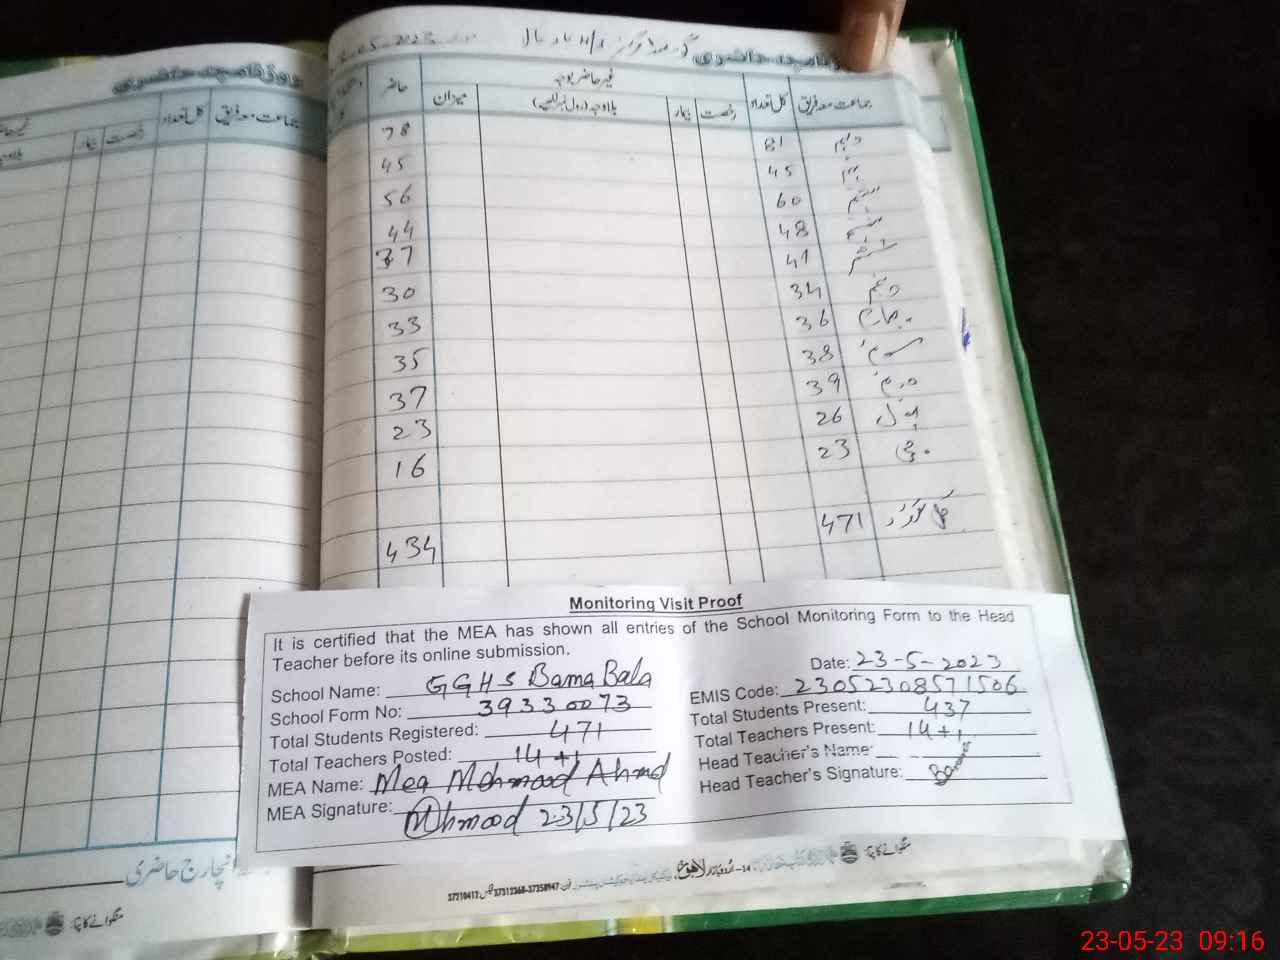 روزنامچہ حاضری
جماعت معہ فریق کل تعداد رخصت بیمار
23-05-2023
روزنامچہ حاضری
جماعت معہ فریق کل تعداد رخصت بیمار بلاوجہ (رول نمبر لکھیے) میزان حاضر
غیر حاضر بوجہ
دہم 81 78
نہم 45 45
ہشتم 60 56
48 44
ششم 41 37
پنجم 34 30
چہارم 36 33
سوم 38 35
دوم 39 37
اول 26 23
23 16
471
434
Monitoring Visit Proof
It is certified that the MEA has shown all entries of the School Monitoring Form to the Head
Teacher before its online submission.
Date: 23-5-2023
School Name: GGHS Bama Bala
EMIS Code: 23052308571506
School Form No: 39330073
Total Students Present: 437
Total Students Registered: 471
Total Teachers Present: 14+1
Total Teachers Posted: 14+1
Head Teacher's Name:
MEA Name: Mea Mehmood Ahmd
Head Teacher's Signature:
MEA Signature: Mhmood 23/5/23
انچارج حاضری
منگوانے کا پتہ:
منگوانے کا پتہ:
14-اُردو بازار لاہور
37312368-37358947
37210412
23-05-23 09:16